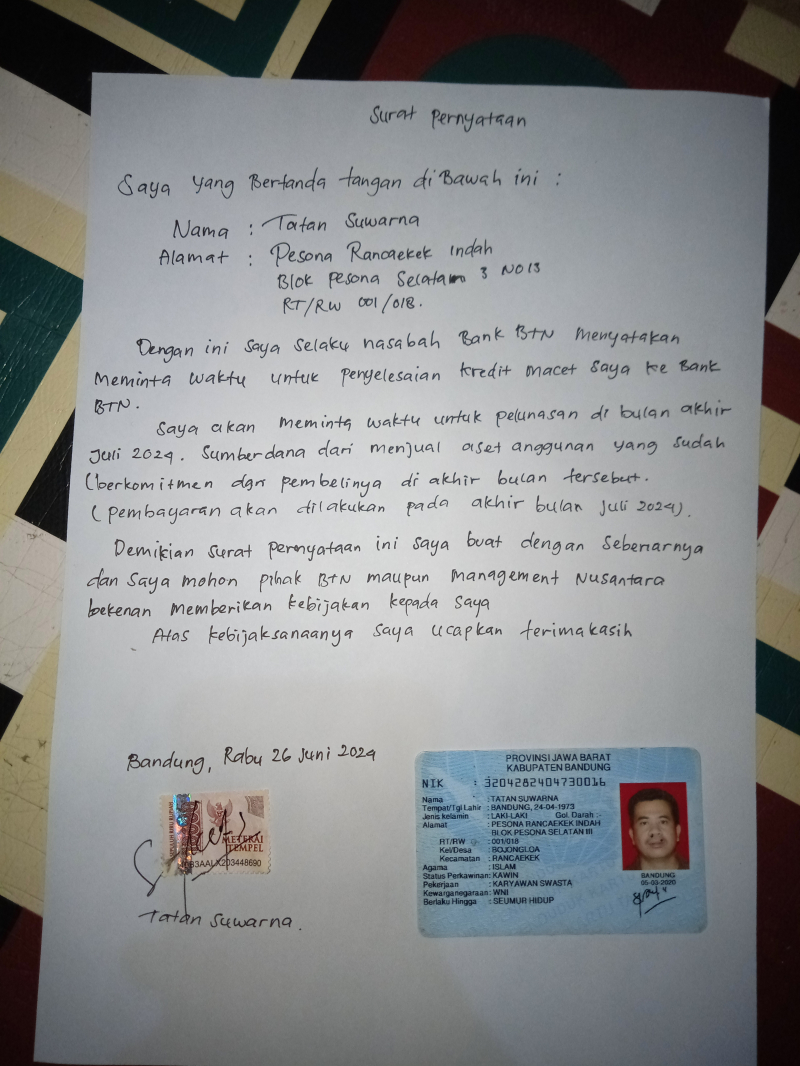 Surat Pernyataan
Saya yang Bertanda tangan di Bawah ini :
Nama : Tatan Suwarna
Alamat : Pesona Rancaekek Indah
Blok Pesona Selatan 3 NO 13
RT/RW 001/018.
Dengan ini saya selaku nasabah Bank BTN Menyatakan
Meminta waktu untuk penyelesaian kredit macet saya ke Bank
BTN.
Saya akan meminta waktu untuk pelunasan di bulan akhir
Juli 2024. Sumberdana dari menjual aset anggunan yang sudah
(berkomitmen dgn pembelinya di akhir bulan tersebut.
(pembayaran akan dilakukan pada akhir bulan Juli 2024).
Demikian surat pernyataan ini saya buat dengan sebenarnya
dan saya mohon pihak BTN maupun Management Nusantara
bekenan memberikan kebijakan kepada saya
Atas kebijaksanaanya saya ucapkan terimakasih
Bandung, Rabu 26 Juni 2024
METERAI
TEMPEL
Tatan Suwarna.
PROVINSI JAWA BARAT
KABUPATEN BANDUNG
NIK : 3204282404730016
Nama : TATAN SUWARNA
Tempat/Tgl Lahir : BANDUNG, 24-04-1973
Jenis kelamin : LAKI-LAKI Gol. Darah :-
Alamat : PESONA RANCAEKEK INDAH
BLOK PESONA SELATAN III
RT/RW : 001/018
Kel/Desa : BOJONGLOA
Kecamatan : RANCAEKEK
Agama : ISLAM
Status Perkawinan: KAWIN
Pekerjaan : KARYAWAN SWASTA
Kewarganegaraan: WNI
Berlaku Hingga : SEUMUR HIDUP
BANDUNG
05-03-2020